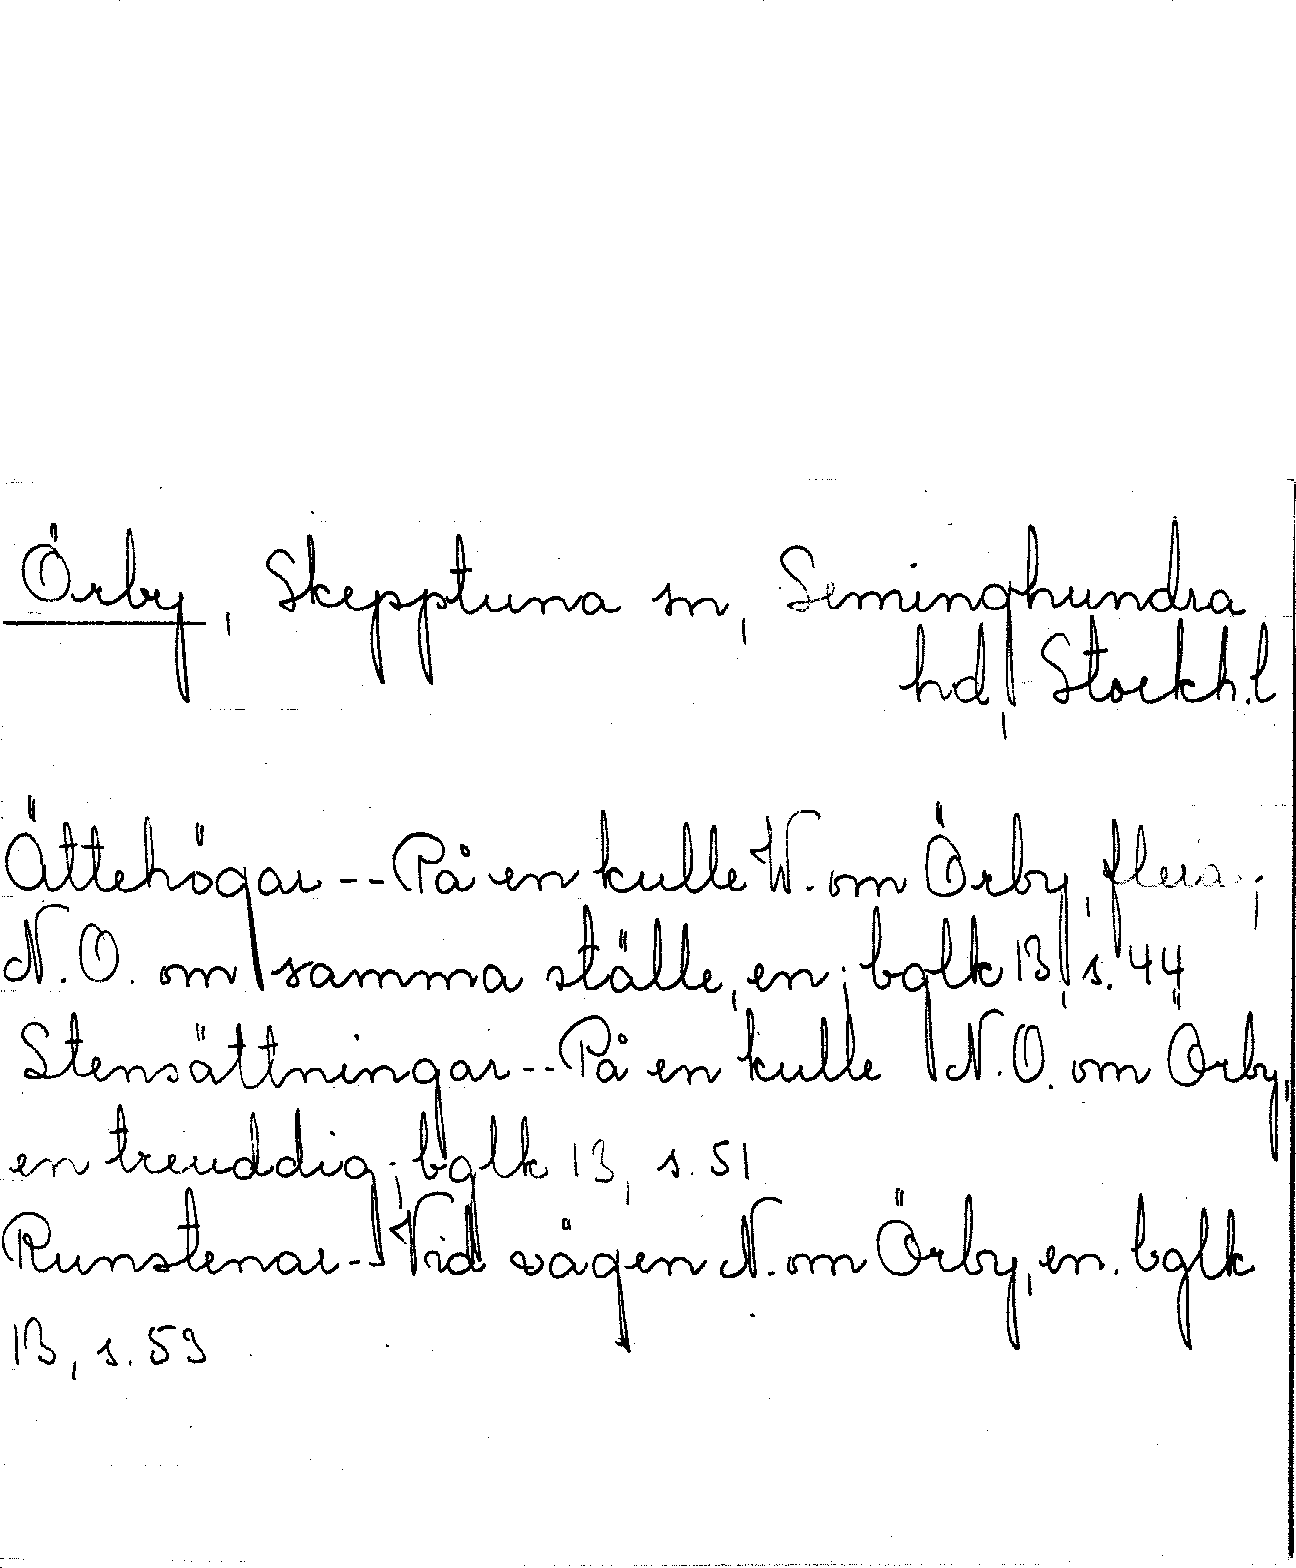 Örby, Skepptuna sn, Seminghundra
hd, Stockh.l
Ättehögar -- På en kulle W. om Örby, flera;
N.O. om samma ställe, en; bglk 13, s. 44
Stensättningar -- På en kulle N.O. om Örby,
en treuddig; bglk 13, s. 51
Runstenar - Vid vägen N. om Örby, en. bglk
13, s. 59